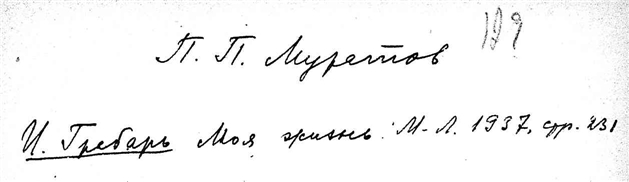 П. П. Муратов 129
И. Гребарь Моя жизнь. М-Л. 1937, стр. 231